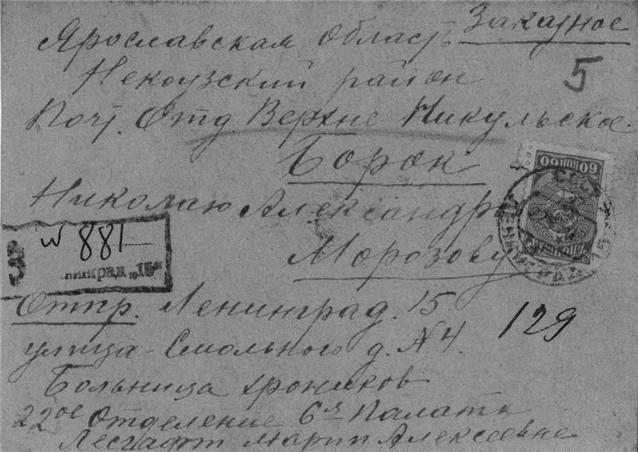 Заказное
Ярославская област.
Некоузский район
5
Почт. Отд Верхне Никульское.
Борок
60 КОП 60
Николаю Александр
Морозову
№ 881
Отпр. Ленинград. 15
129
улица Смольного д. N4.
Больница хроников
22ое Отделение 6я Палата
Лесгафт Марии Алексеевне